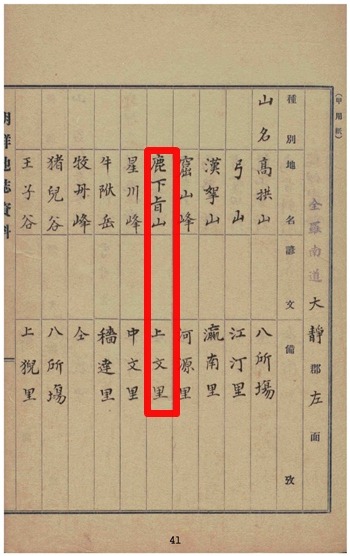 (甲用紙)
全羅南道 大靜郡 左面
種別 地名 諺文 備攷
山名 高拱山 八所塲
弓山 江汀里
漢拏山 瀛南里
窟山峰 河源里
鹿下旨山 上文里
星川峰 中文里
牛 岳 穡達里
牧丹峰 仝
猪兒谷 八所塲
王子谷 上猊里
朝鮮地誌資料
41